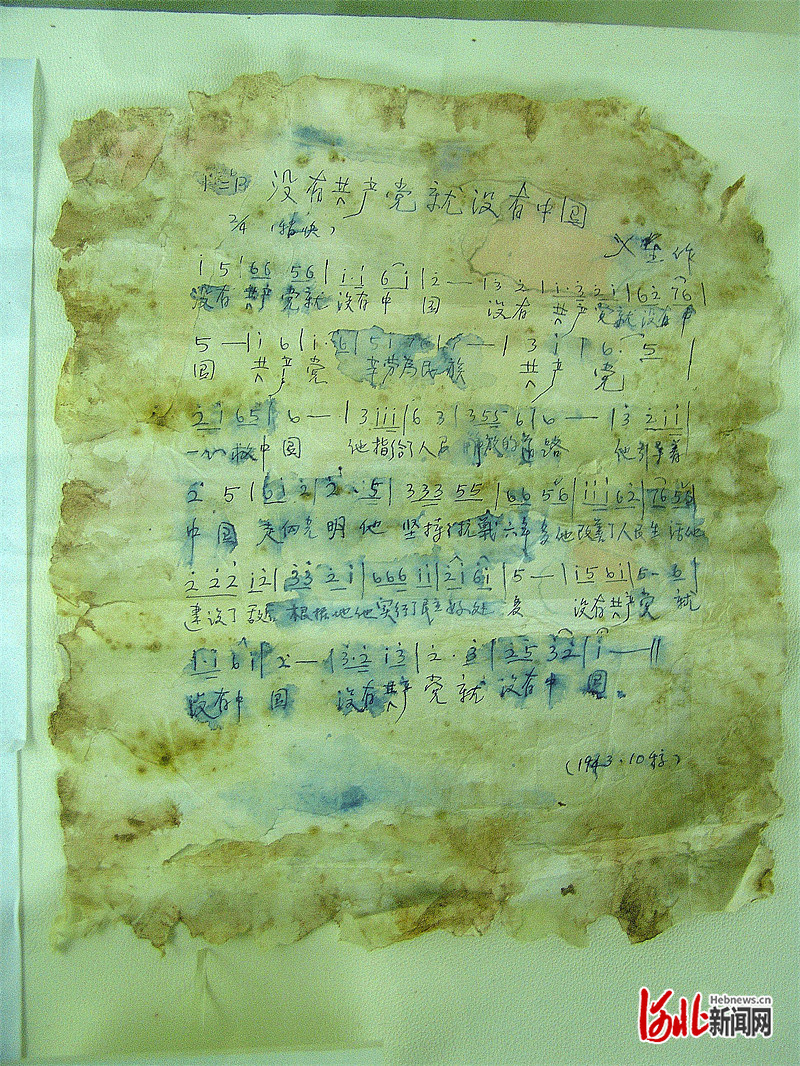 1=B 没有共产党就没有中国
2/4 (稍快)
作
i 5 | 66 56 | i·i 6 i | 2 — | i 3 2 | i·2 2 i | 62 76 |
没有 共产党就 没有中 国 没有 共产党就没有中
5 — | i 6 | i· 6 | 5 i — | i 3 i | 6· 5 |
国 共产党 辛劳为民族 共产党
2 i 65 | 6 — | 3 i i i | 6 3 | 3 5 5 6 | 6 — | i 3 2 i i |
一心救中国 他指给了人民 解放的道路 他引导着
2 5 | 6 i 2 | 2· i 5 | 333 55 | 66 56 | i i i 62 | 76 55 |
中国 走向光明他 坚持了抗战六年多他改善了人民生活他
2 22 i2 | 33 2 i | 666 i i | 2 i 6 i | 5 — | i 5 6 i | 5· 6 |
建设了敌后根据地他实行了民主好处多 没有共产党 就
i·i 6 i | 2 — | 3·2 i 3 | 2· 3 | 25 32 | i — ||
没有中 国 没有共产党就 没有中 国。
(1943.10.
河北新闻网
Hebnews.cn